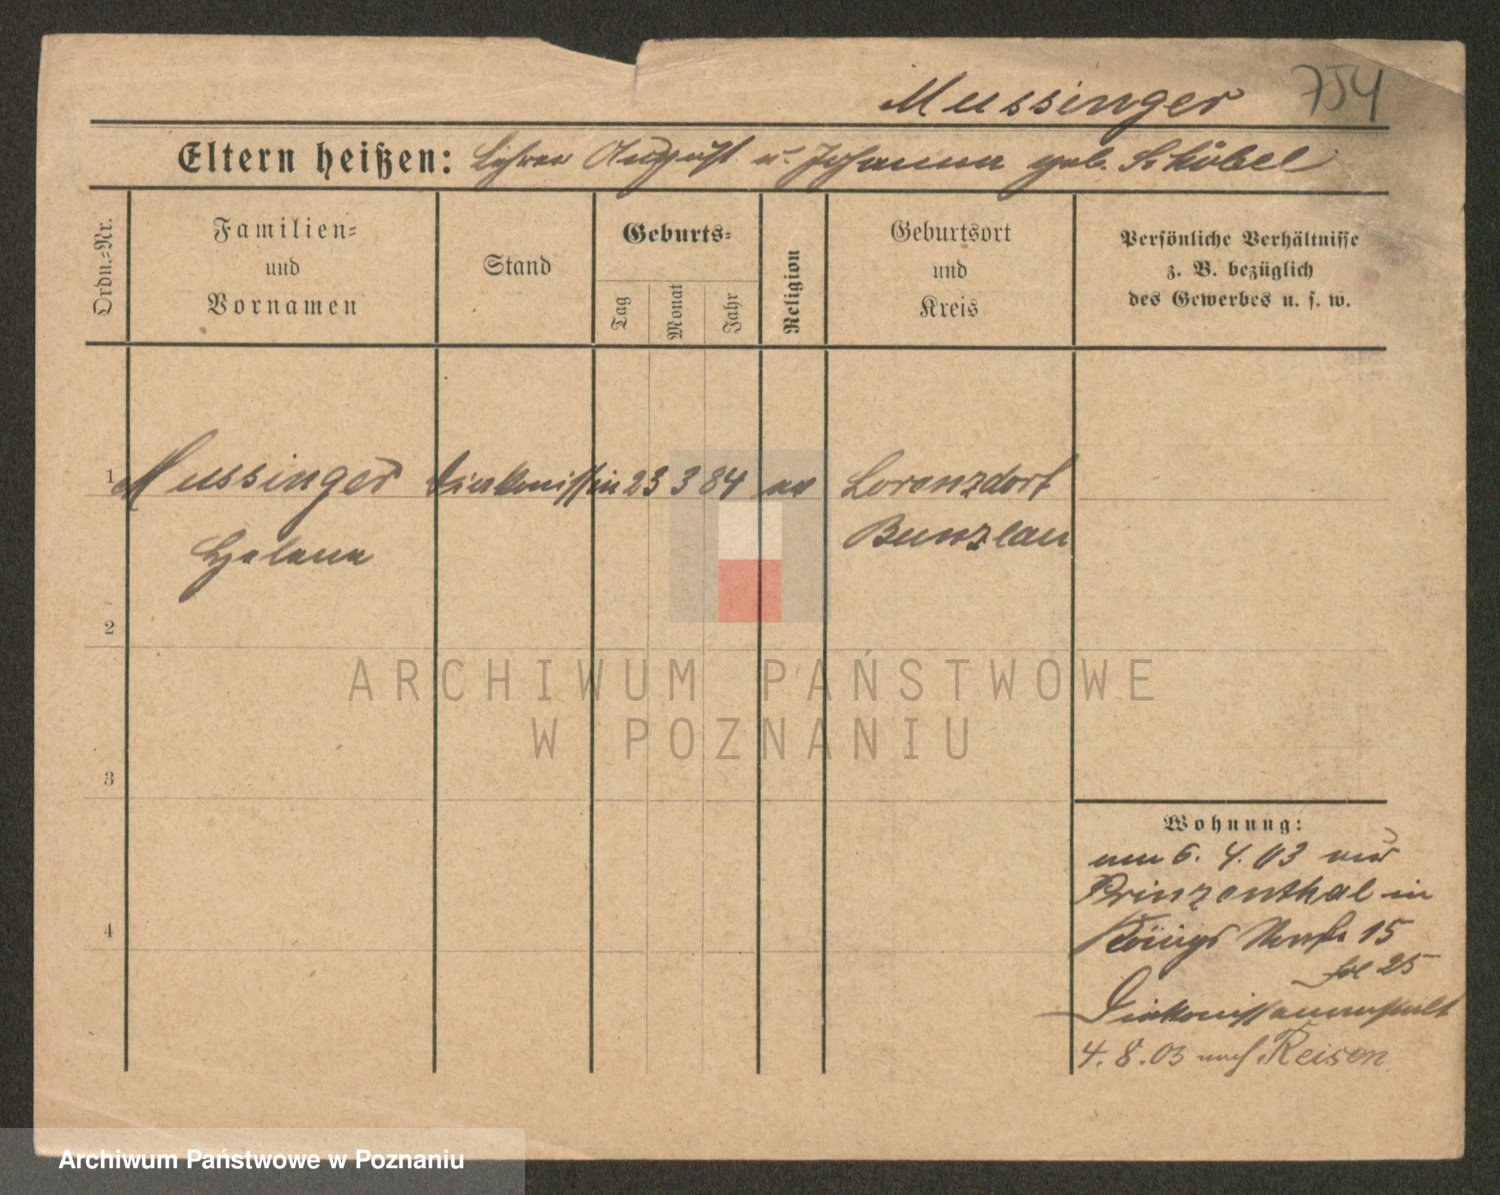 Mussinger 754
Eltern heißen: Lehrer August u. Johanna geb. Schöbel
Ordn.-Nr.
Familien-
und
Vornamen
Stand
Geburts-
Tag
Monat
Jahr
Religion
Geburtsort
und
Kreis
Persönliche Verhältnisse
z. B. bezüglich
des Gewerbes u. s. w.
1 Mussinger Diakonissin 23 3 84 ev Lorenzdorf
Helene Bunzlau
2
3
4
ARCHIWUM PAŃSTWOWE
W POZNANIU
Wohnung:
6. 4. 03
Prinzenthal in
Königs 15
25
Diakonissenanstalt
4. 8. 03 nach Reisen
Archiwum Państwowe w Poznaniu